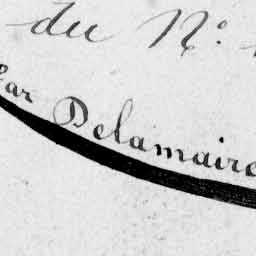 du N.°
Par Delamaire